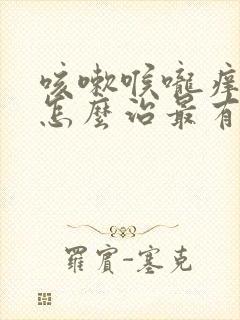 咳嗽喉嚨痒
怎麼治最有
羅賓-塞克